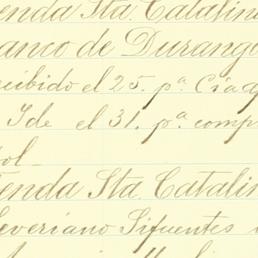 Tienda Sta. Catalina
Banco de Durango
Recibido el 25. pª Cia
Yde el 31. pª comp
Tienda Sta. Catalina
Severiano Sifuentes